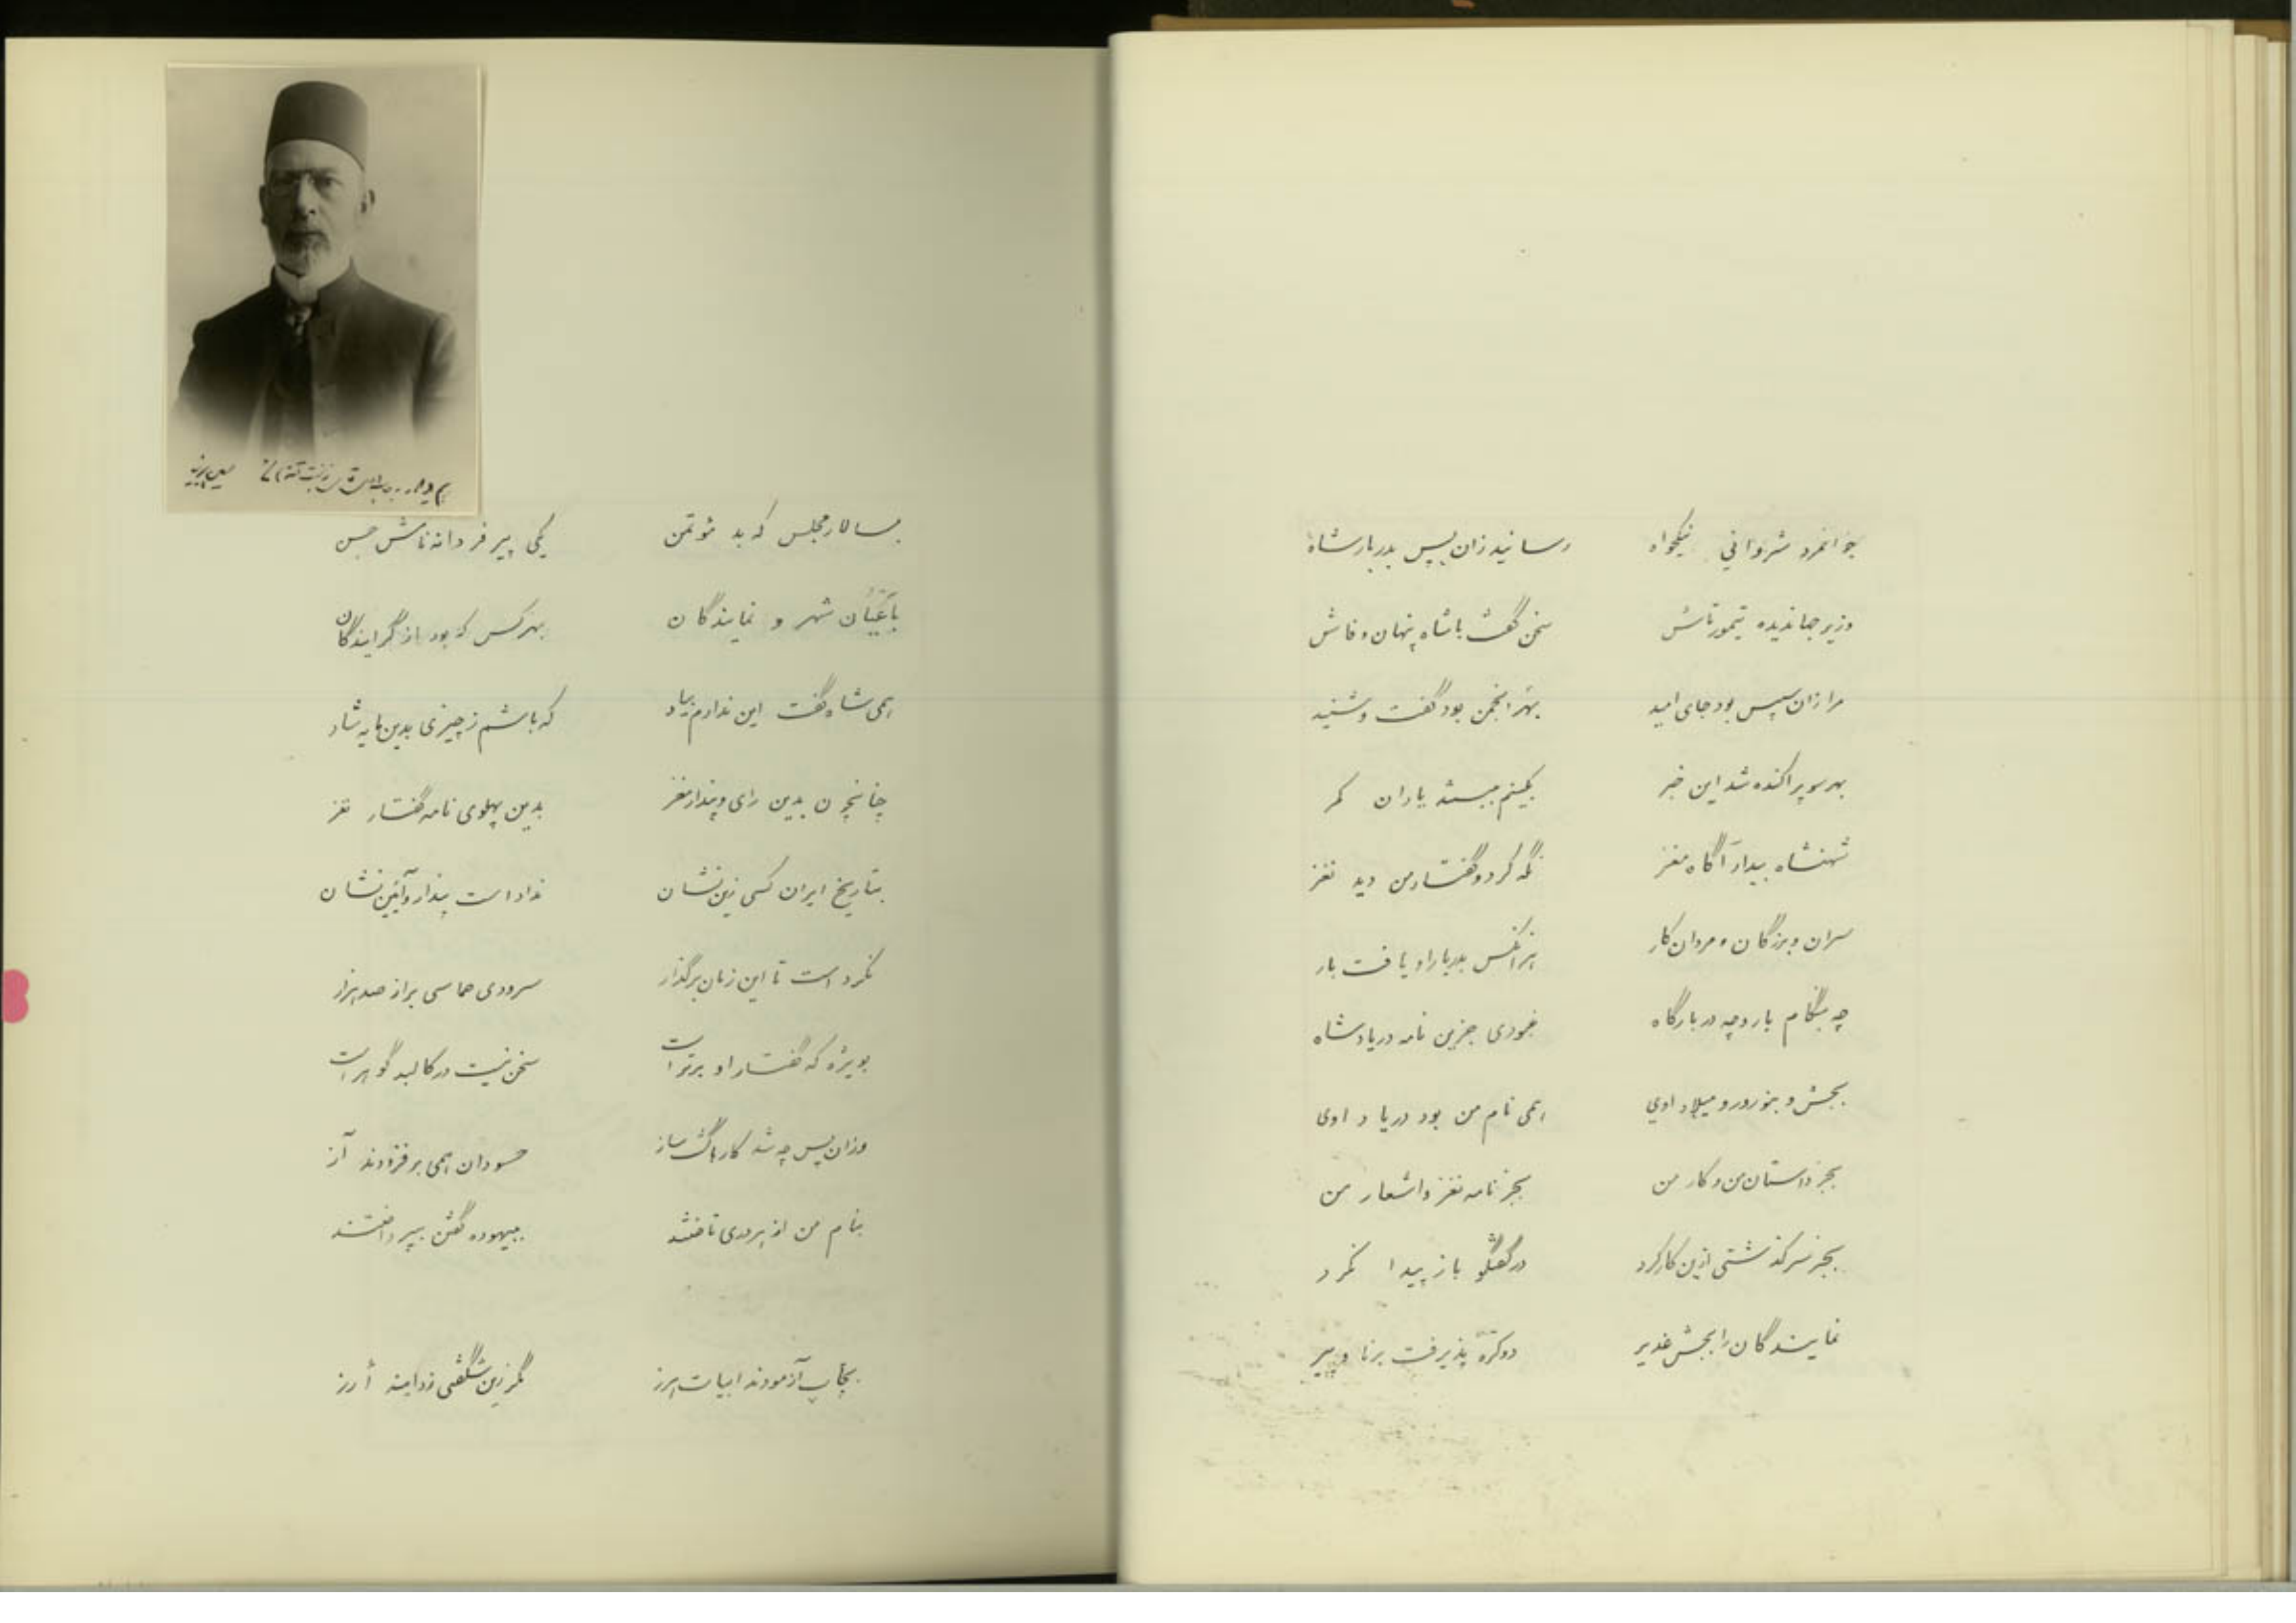 جوانمرد شروانی نیکخواه رسانید زان پس بدربار شاه
وزیر جهاندیده تیمورتاش سخن گفت با شاه پنهان و فاش
مرا زان سپس بود جای امید بهر انجمن بود گفت و شنید
بهر سو پراکنده شد این خبر بکینم ببستند یاران کمر
شهنشاه بیدار آگاه مغز نگه کرد و گفتار من دید نغز
سران و بزرگان و مردان کار هر آنکس بدربار او یافت بار
چه هنگام بار و چه در بارگاه نبودی جزین نامه در یاد شاه
بجشن و بنوروز و میلاد اوی همی نام من بود در یاد اوی
بجز داستان من و کار من بجز نامه نغز و اشعار من
بجز سرگذشتی ازین کارکرد در گفتگو باز پیدا نکرد
نمایندگان را بجشن غدیر دو کرّه پذیرفت برنا و پیر
بسالار مجلس که بد مؤتمن یکی پیر فردانه نامش حسن
باعیان شهر و نمایندگان بهر کس که بود از گرایندگان
همی شاه گفت این ندارم بیاد که باشم ز چیزی بدین مایه شاد
چنانچون بدین رای و پندار مغز بدین پهلوی نامه گفتار نغز
بتاریخ ایران کسی زین نشان نداد است پندار و آیین نشان
نکرد است تا این زمان برگذار سرودی حماسی بر از صد هزار
بویژه که گفتار او برتر است سخن نیست در کالبد گوهر است
وزان پس چه شد کارها گشت ساز حسودان همی برفزودند آز
بنام من از هر دری تاختند ببیهوده گفتن بپرداختند
بچاپ آزمودند ابیات ارز مگر زین شگفتی زدایند ارز